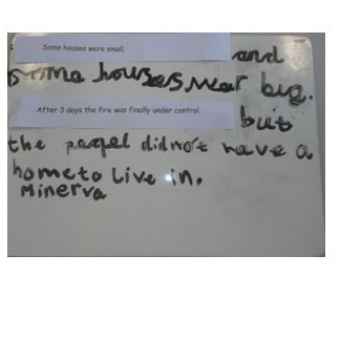 Some houses were small. and
some houses wear big.
After 3 days the fire was finally under control. but
the peopel did not have a
home to Live in.
Minerva